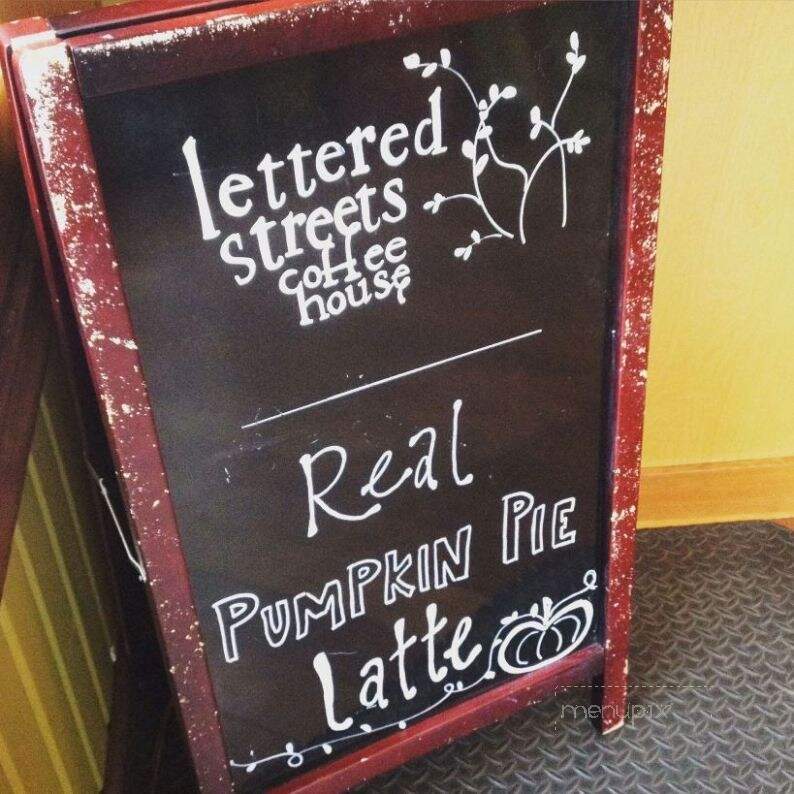 lettered
streets
coffee
house
Real
PUMPKIN PIE
Latte
menupix